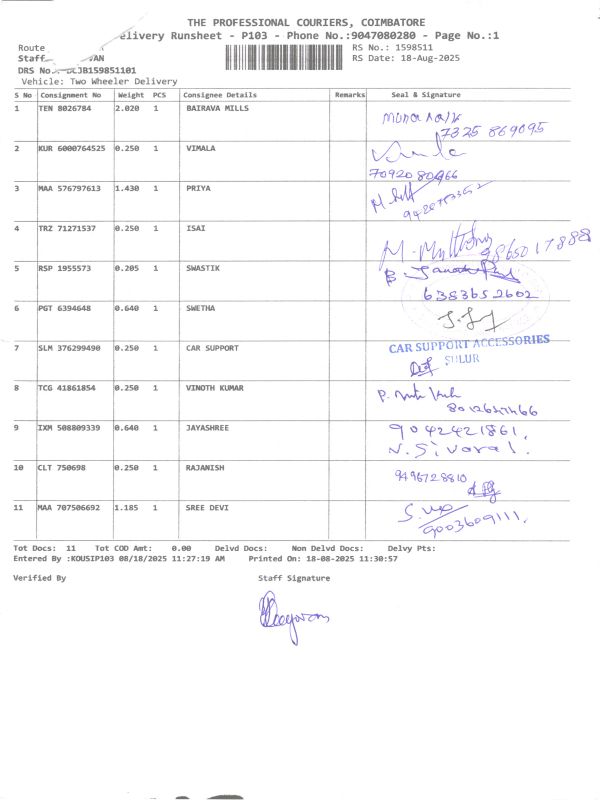 THE PROFESSIONAL COURIERS, COIMBATORE
elivery Runsheet - P103 - Phone No.:9047080280 - Page No.:1
Route
RS No.: 1598511
Staff VAN
RS Date: 18-Aug-2025
DRS No. JB159851101
Vehicle: Two Wheeler Delivery
S No Consignment No Weight PCS Consignee Details Remarks Seal & Signature
1 TEN 8026784 2.020 1 BAIRAVA MILLS
7325 869095
2 KUR 6000764525 0.250 1 VIMALA
7092080966
3 MAA 576797613 1.430 1 PRIYA
4 TRZ 71271537 0.250 1 ISAI
9865017888
5 RSP 1955573 0.205 1 SWASTIK
6383652602
6 PGT 6394648 0.640 1 SWETHA
7 SLM 376299490 0.250 1 CAR SUPPORT CAR SUPPORT ACCESSORIES
SULUR
8 TCG 41861854 0.250 1 VINOTH KUMAR
9 IXM 508809339 0.640 1 JAYASHREE 9042421861.
10 CLT 750698 0.250 1 RAJANISH 9496728810
11 MAA 707506692 1.185 1 SREE DEVI
9003609111.
Tot Docs: 11 Tot COD Amt: 0.00 Delvd Docs: Non Delvd Docs: Delvy Pts:
Entered By :KOUSIP103 08/18/2025 11:27:19 AM Printed On: 18-08-2025 11:30:57
Verified By Staff Signature